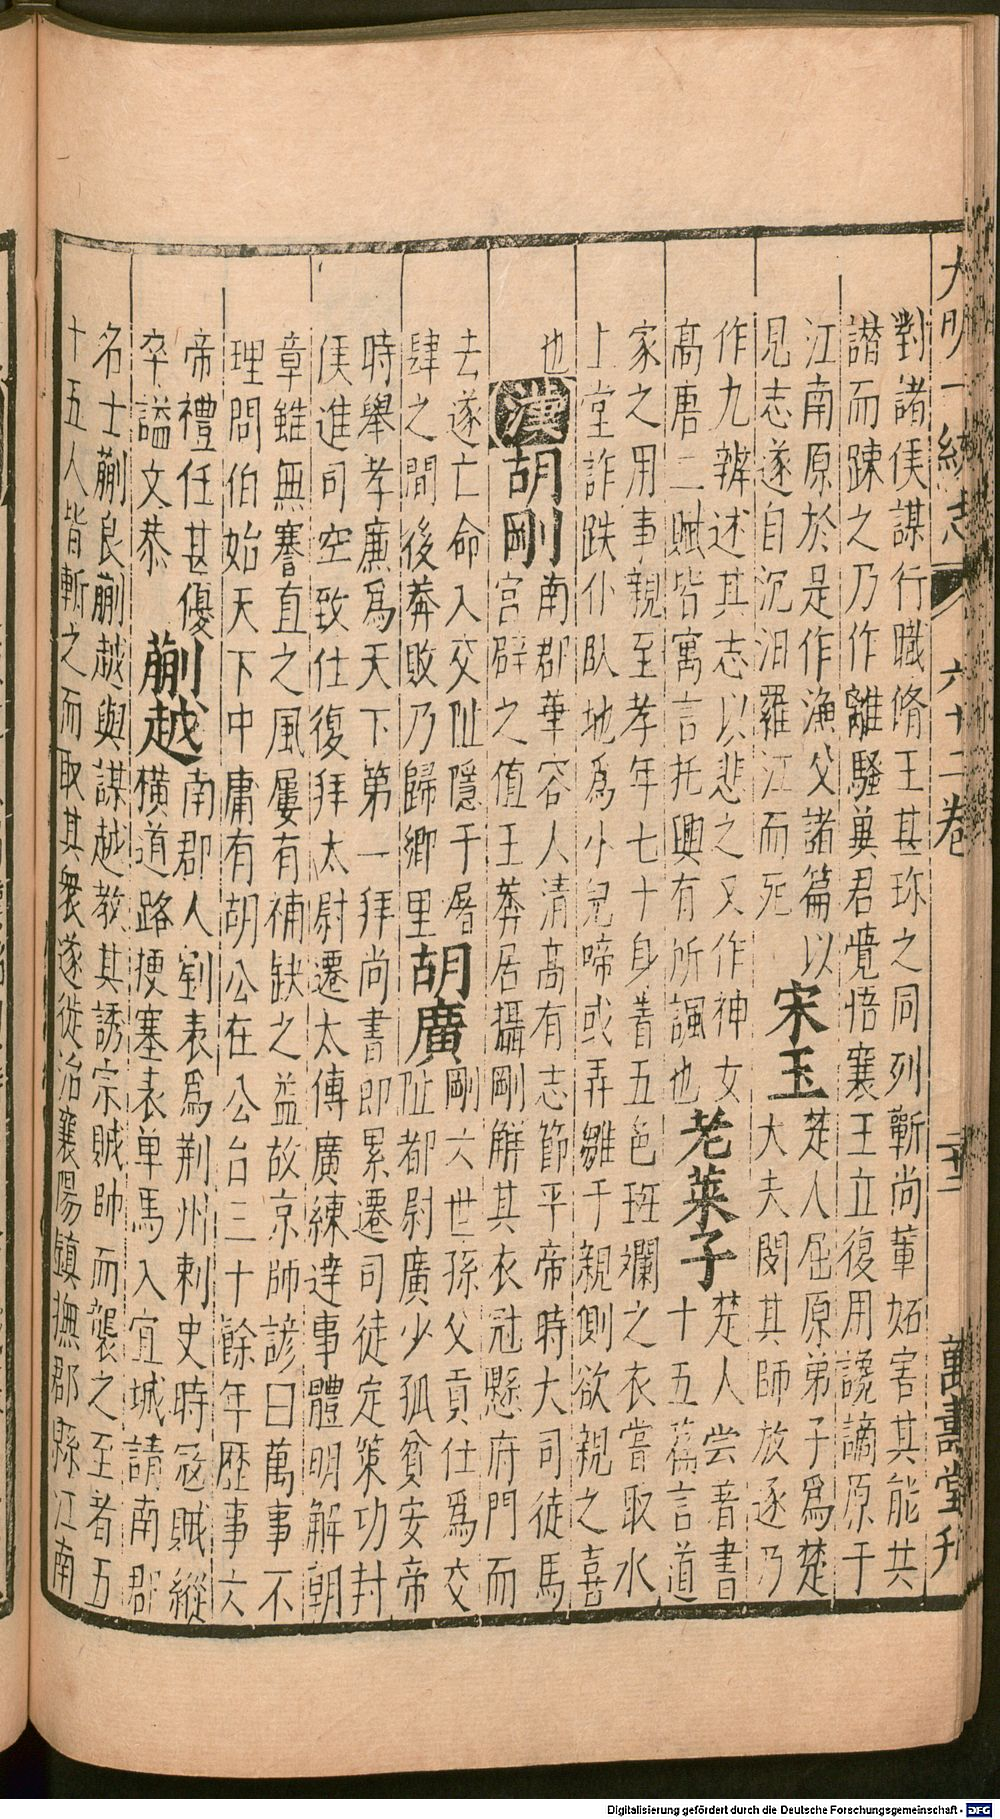 大明一統志 六十二卷 十二 萬壽堂刊
對諸侯謀行職脩王甚珍之同列靳尚輩妬害其能共
譖而踈之乃作離騷兾君覺悟襄王立復用讒謫原于
江南原於是作漁父諸篇以
見志遂自沉汨羅江而死
宋玉
楚人屈原弟子爲楚
大夫閔其師放逐乃
作九辨述其志以悲之又作神女
高唐二賦皆寓言托興有所諷也
老萊子
楚人尝著書
十五篇言道
家之用事親至孝年七十身着五色班斕之衣嘗取水
上堂詐跌仆臥地爲小兒啼或弄雛于親側欲親之喜
也
漢
胡剛
南郡華容人清高有志節平帝時大司徒馬
宮辟之值王莽居攝剛解其衣冠懸府門而
去遂亡命入交阯隱于屠
肆之間後莽敗乃歸鄉里
胡廣
剛六世孫父貢仕爲交
阯都尉廣少孤貧安帝
時舉孝廉爲天下第一拜尚書郎累遷司徒定策功封
侯進司空致仕復拜太尉遷太傅廣練達事體明解朝
章雖無謇直之風屢有補缺之益故京師諺曰萬事不
理問伯始天下中庸有胡公在公台三十餘年歷事六
帝禮任甚優
卒謚文恭
蒯越
南郡人劉表爲荆州刺史時寇賊縱
橫道路梗塞表单馬入宜城請南郡
名士蒯良蒯越與謀越教其誘宗賊帥而襲之至者五
十五人皆斬之而取其衆遂徙治襄陽鎮撫郡縣江南
Digitalisierung gefördert durch die Deutsche Forschungsgemeinschaft - DFG